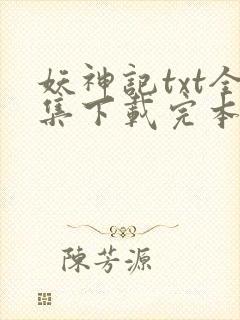 妖神記txt全
集下載完本
陳芳源